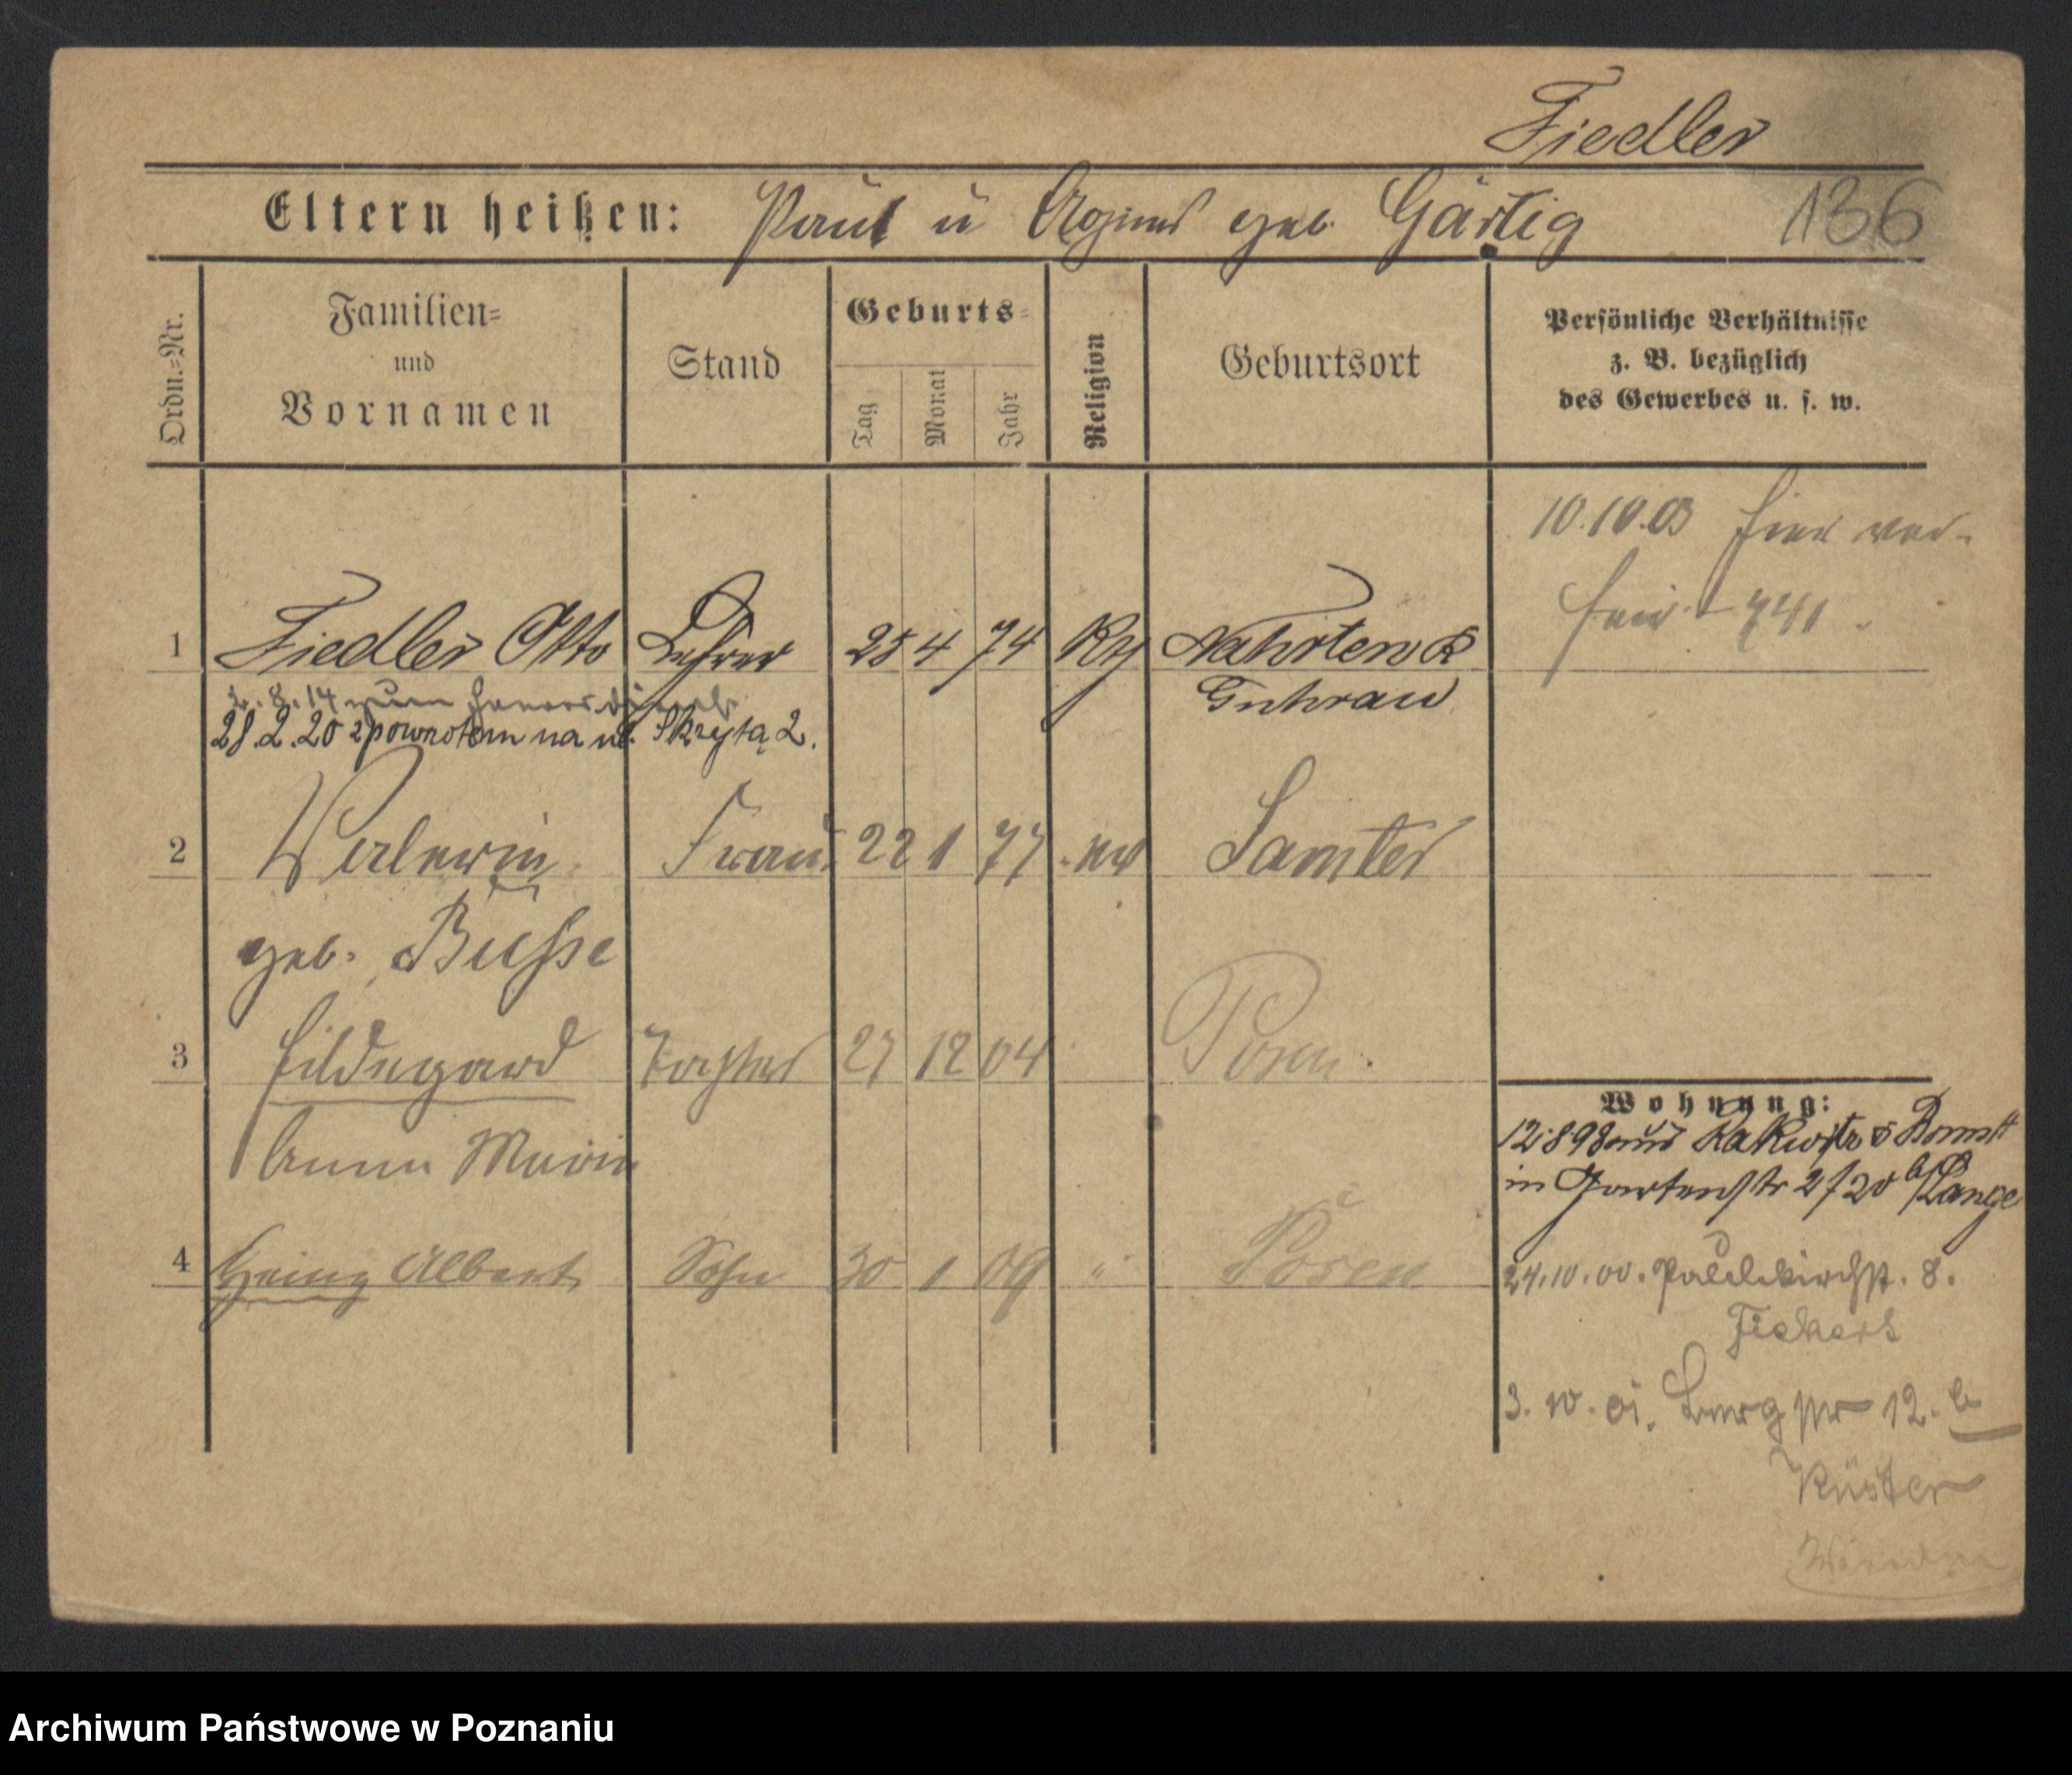 Fiedler
Eltern heißen: Paul u Agnes geb. Gärtig
136
Ordn.-Nr.
Familien- und Vornamen
Stand
Geburts-
Tag
Monat
Jahr
Religion
Geburtsort
Persönliche Verhältnisse
z. B. bezüglich
des Gewerbes u. s. w.
10.10.03 hier ver-
heir. 741.
1 Fiedler Otto Lehrer 25 4 74 Nahrten K
Guhrau
2.8.14 zum Heeresdienst
28.2.20 zpowrotem na ul. Skrytą 2.
2 Frau 22 1 77 ev Samter
geb. Busse
3 Hildegard Tochter 27 12 04 Posen.
Anna Maria
4 Heinz Albert Sohn 30 1 09 " Posen
Wohnung:
12.8 98 aus Rakwitz Bomst
in Gartenstr 2 b/Lange
24.10.00. Paulikirchstr. 8.
3. 10. 01. 12. b
Küster
Archiwum Państwowe w Poznaniu